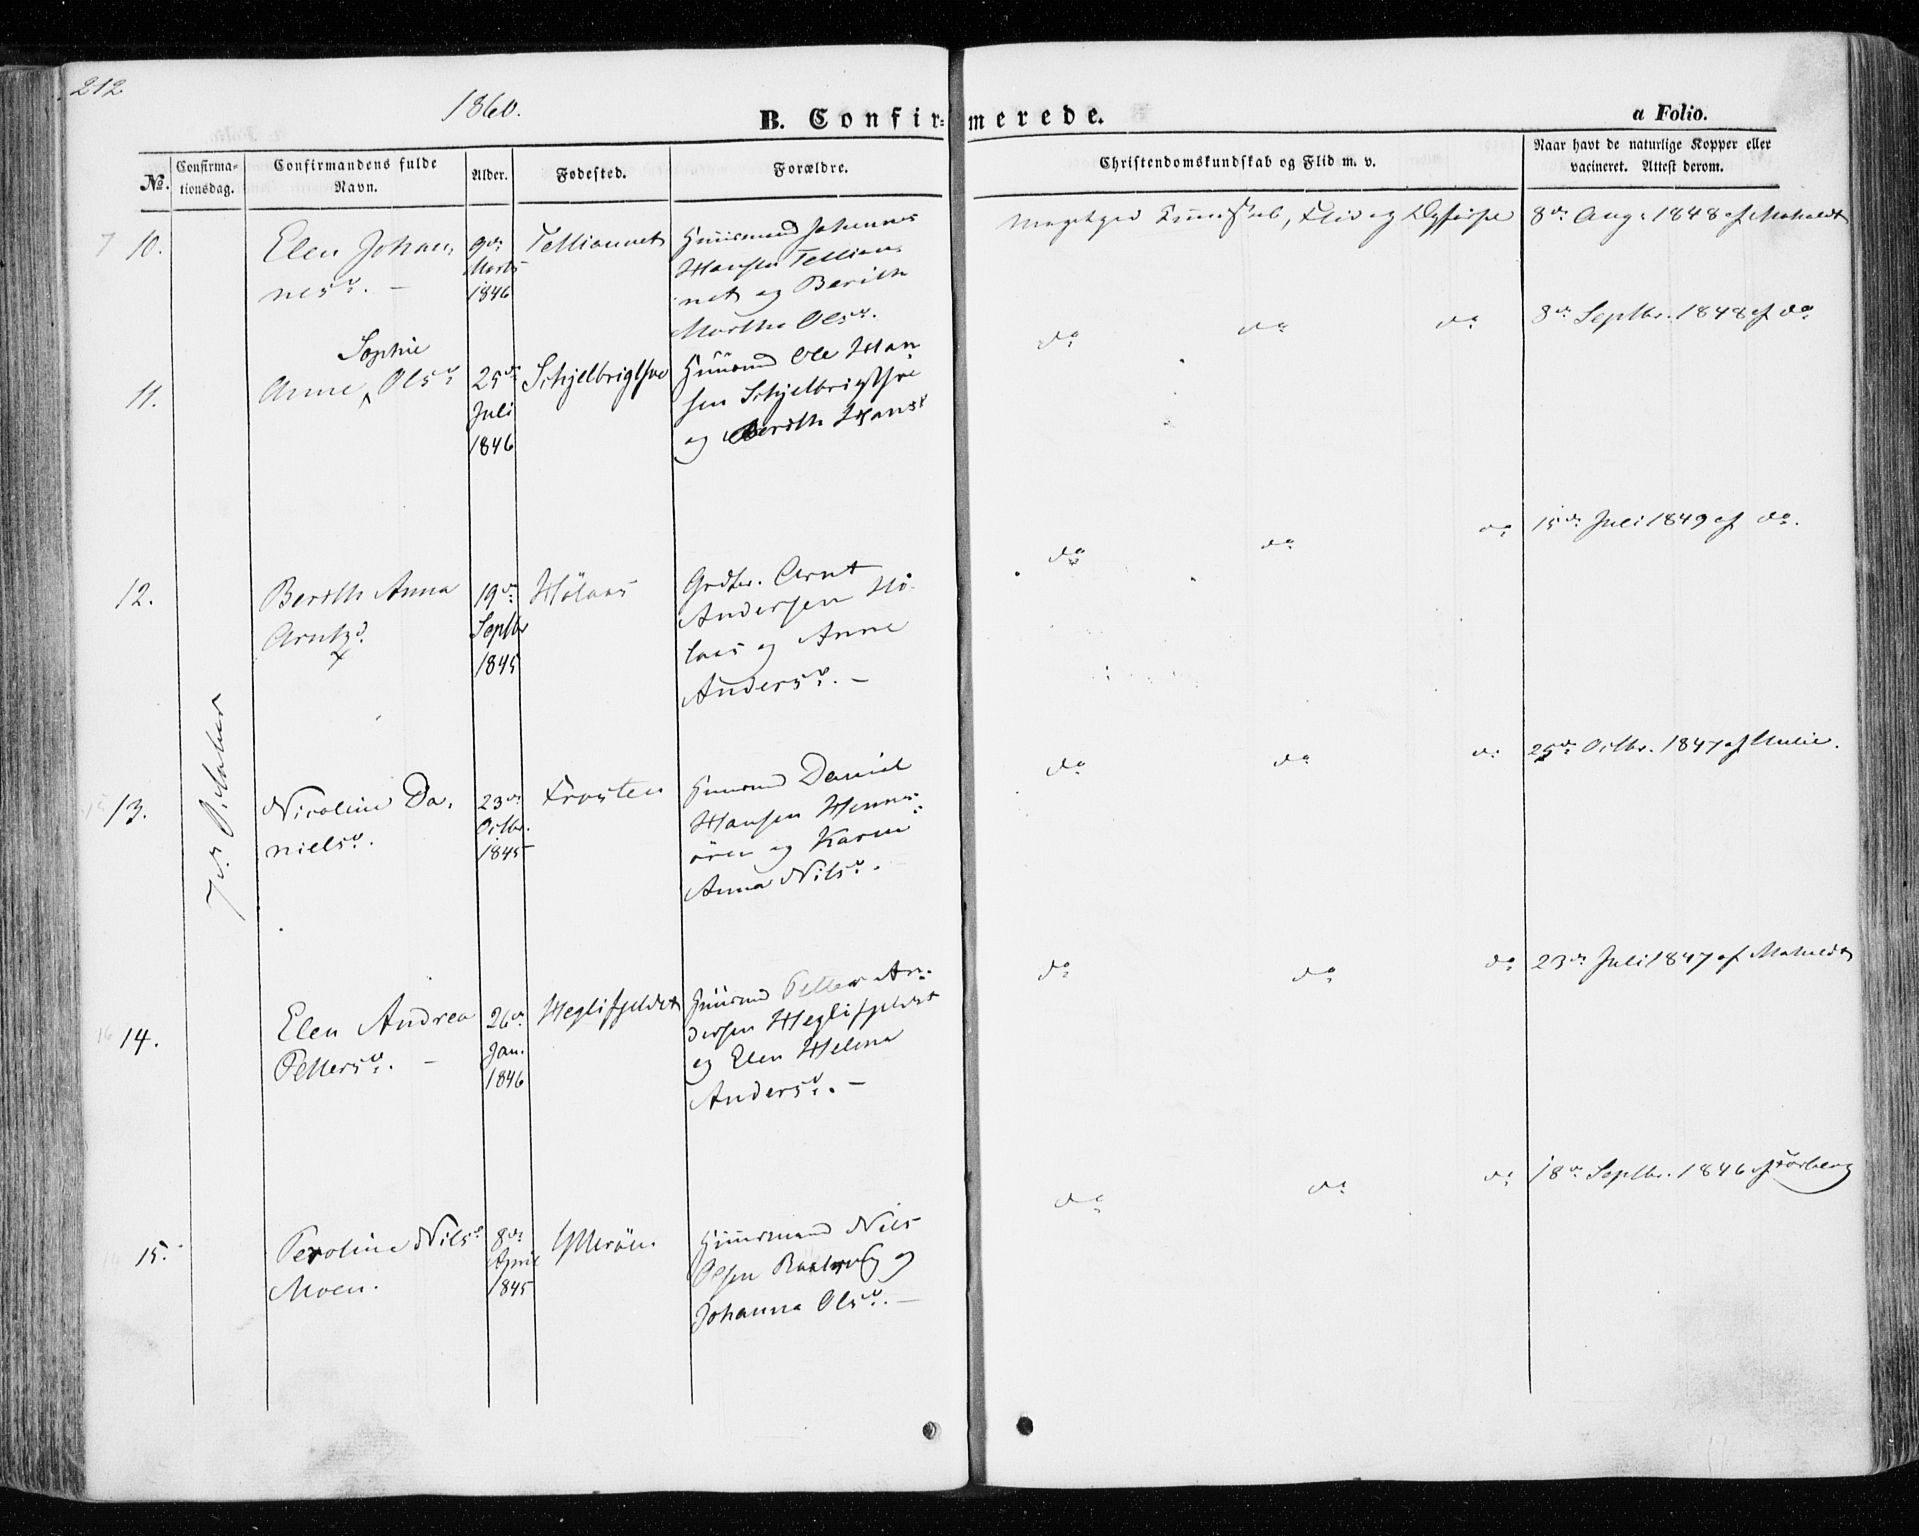 212
1860.
B. Confirmerede.
a Folio.
No.
Confirmationsdag.
Confirmandens fulde Navn.
Alder.
Fødested.
Forældre.
Christendomskundskab og Flid m. v.
Naar havt de naturlige Kopper eller vacineret. Attest derom.
7de October
10.
Elen Johan-
nesd. –
9de
Marts
1846
Huusmand Johannes
Hansen
net og Berith
Martha Olsd.
Meget god Kundskab, Flid og
8de Aug. 1848 af
11.
Sophie
Anne Olsd.
25de
Juli
1846
Huusmd Ole Han
sen
og Berith Hansd
do do do
8de Septbr. 1848 af do
12.
Berith Anna
Arntsd.
19de
Septbr
1845
Hölaas
Grdbr. Arnt
Andersen Hö-
laas og Anne
Andersd. –
do do do
15de Juli 1849 af do.
13.
Nicoline Da-
nielsd.
23de
Octbr.
1845
Frosten
Huusmd Daniel
Hansen
og Karen
Anna Nilsd.
do do do
25de Octbr. 1847 af
14.
Elen Andrea
Pettersd. –
26de
Jan.
1846
Heglifjeldet
Huusmd Petter An-
dersen Heglifjeldet
og Elen Helena
Andersd. –
do do do
23de Juli 1847 af
15.
Peroline Nilsd
Moen.
8de
April
1845
Ytterøen
Huusmand Nils
Olsen og
Johanna Olsd. –
do do do
18de Septbr. 1846 af